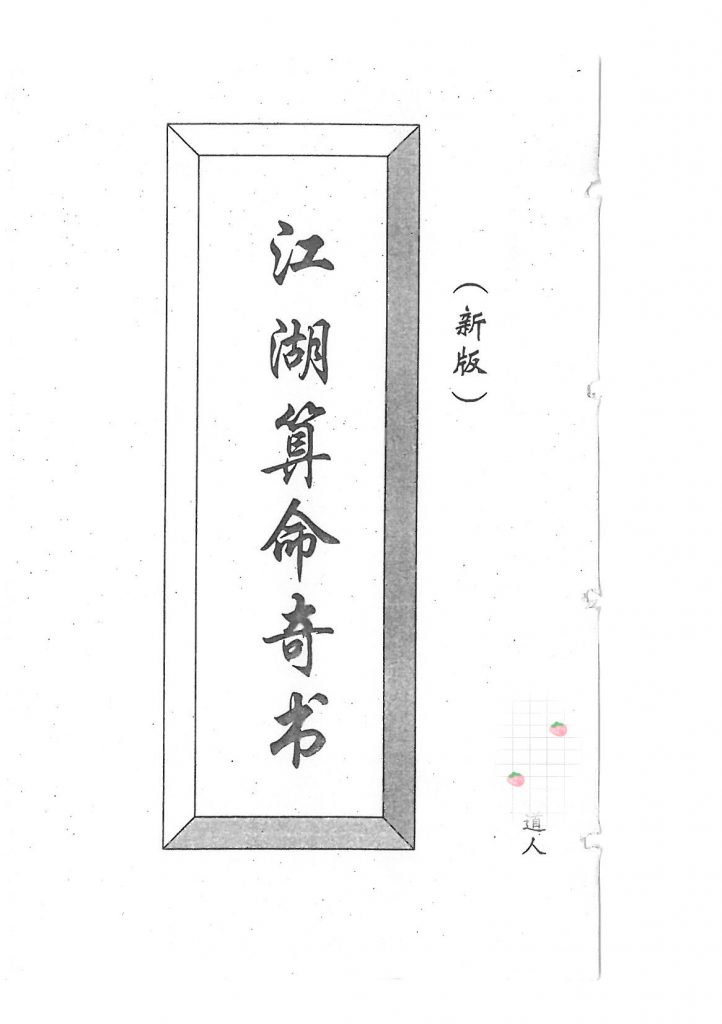 (新版)
江湖算命奇书
道人